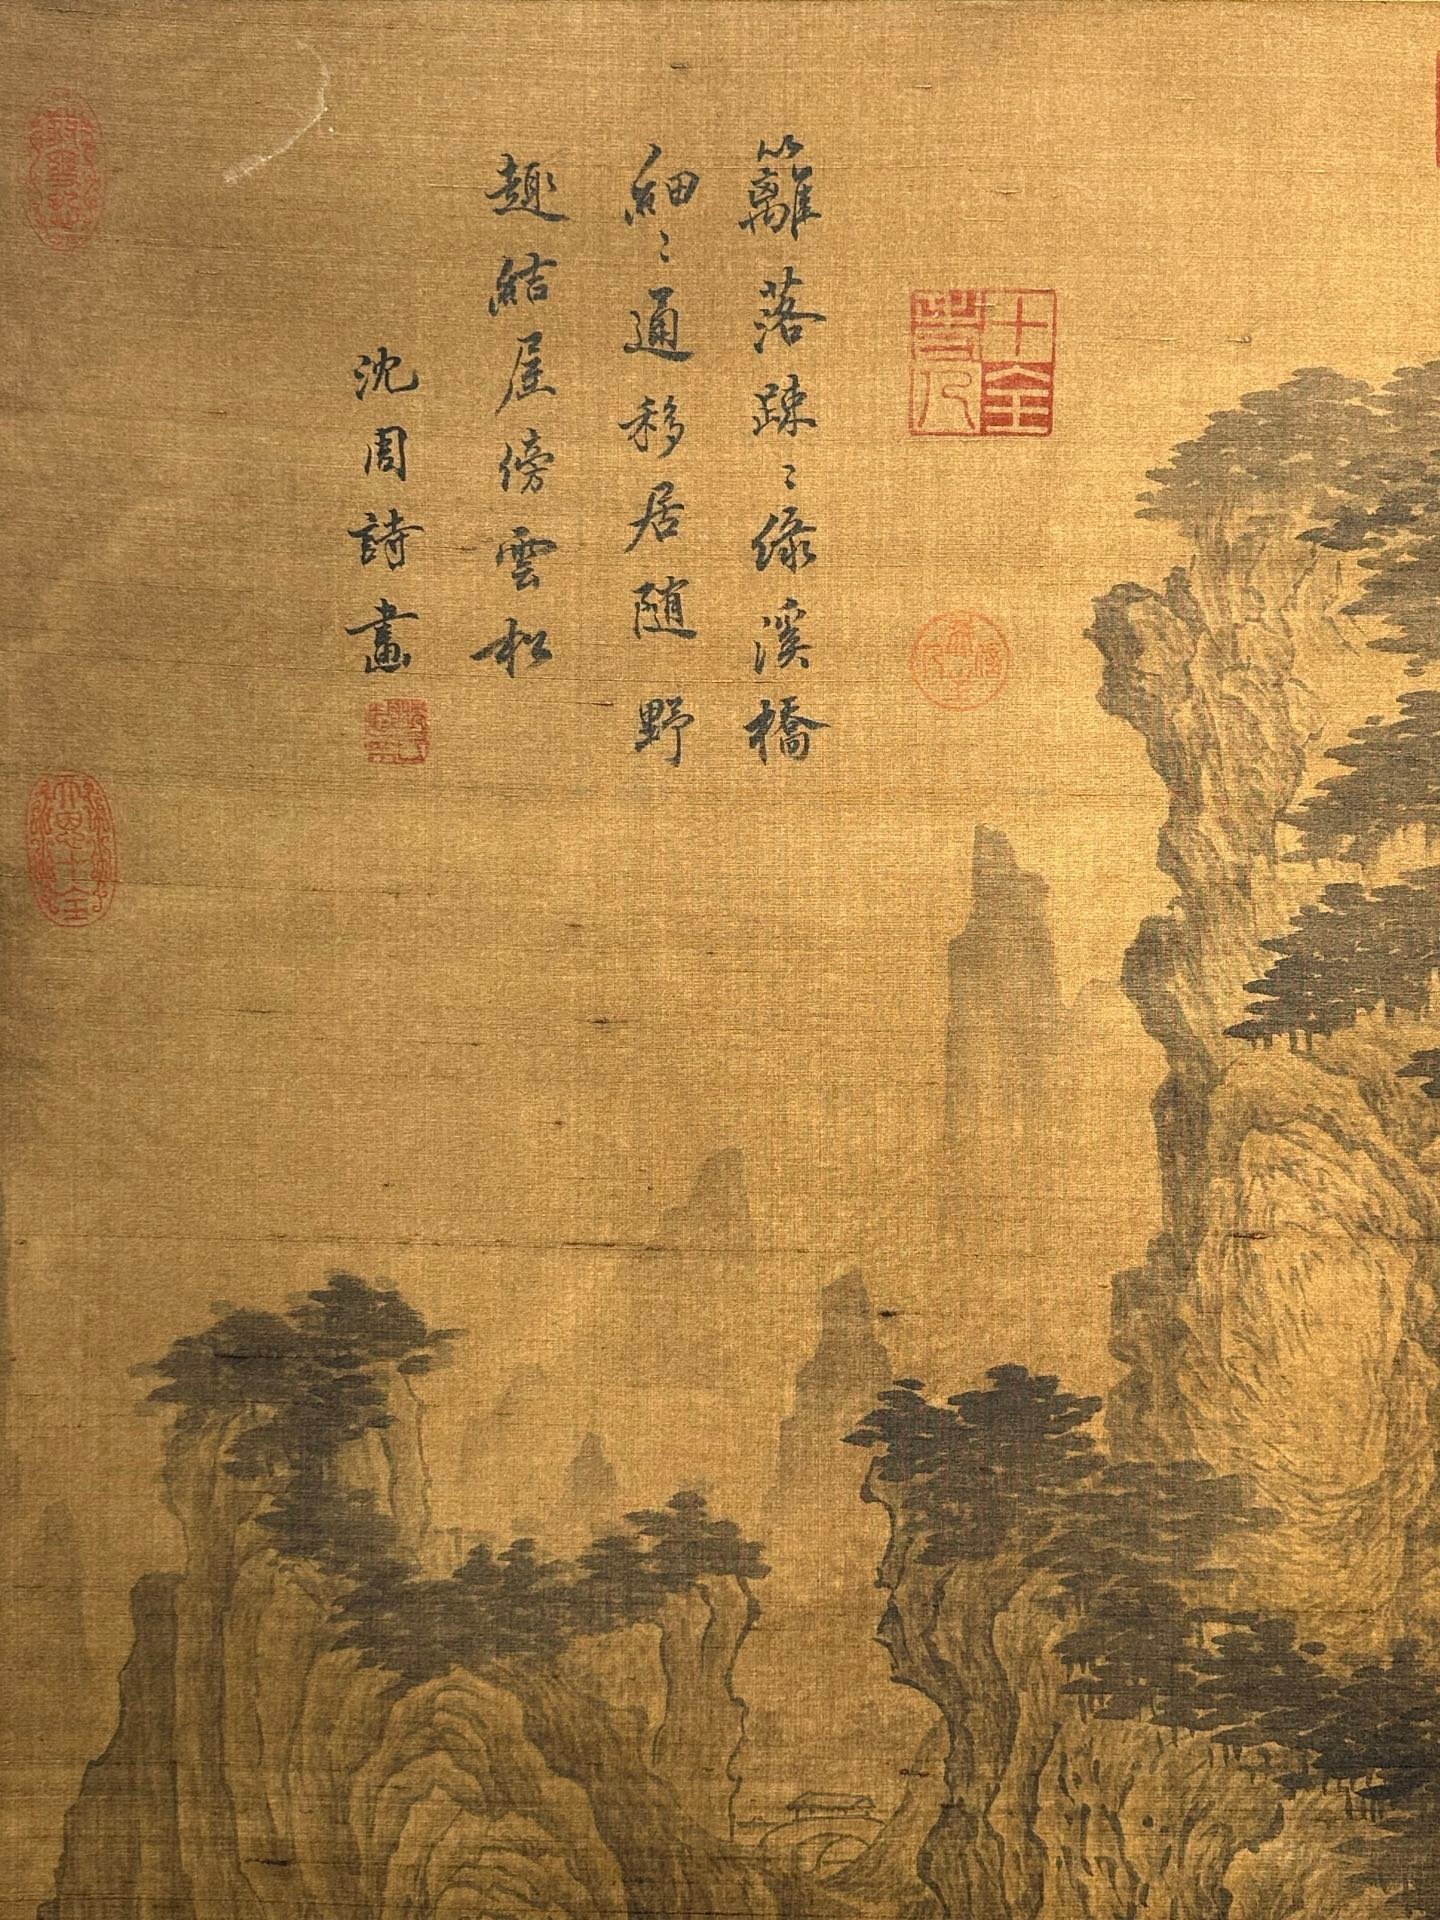 籬落踈〻綠溪橋
細〻通移居隨野
趣結屋傍雲松
沈周詩畫
十全老人